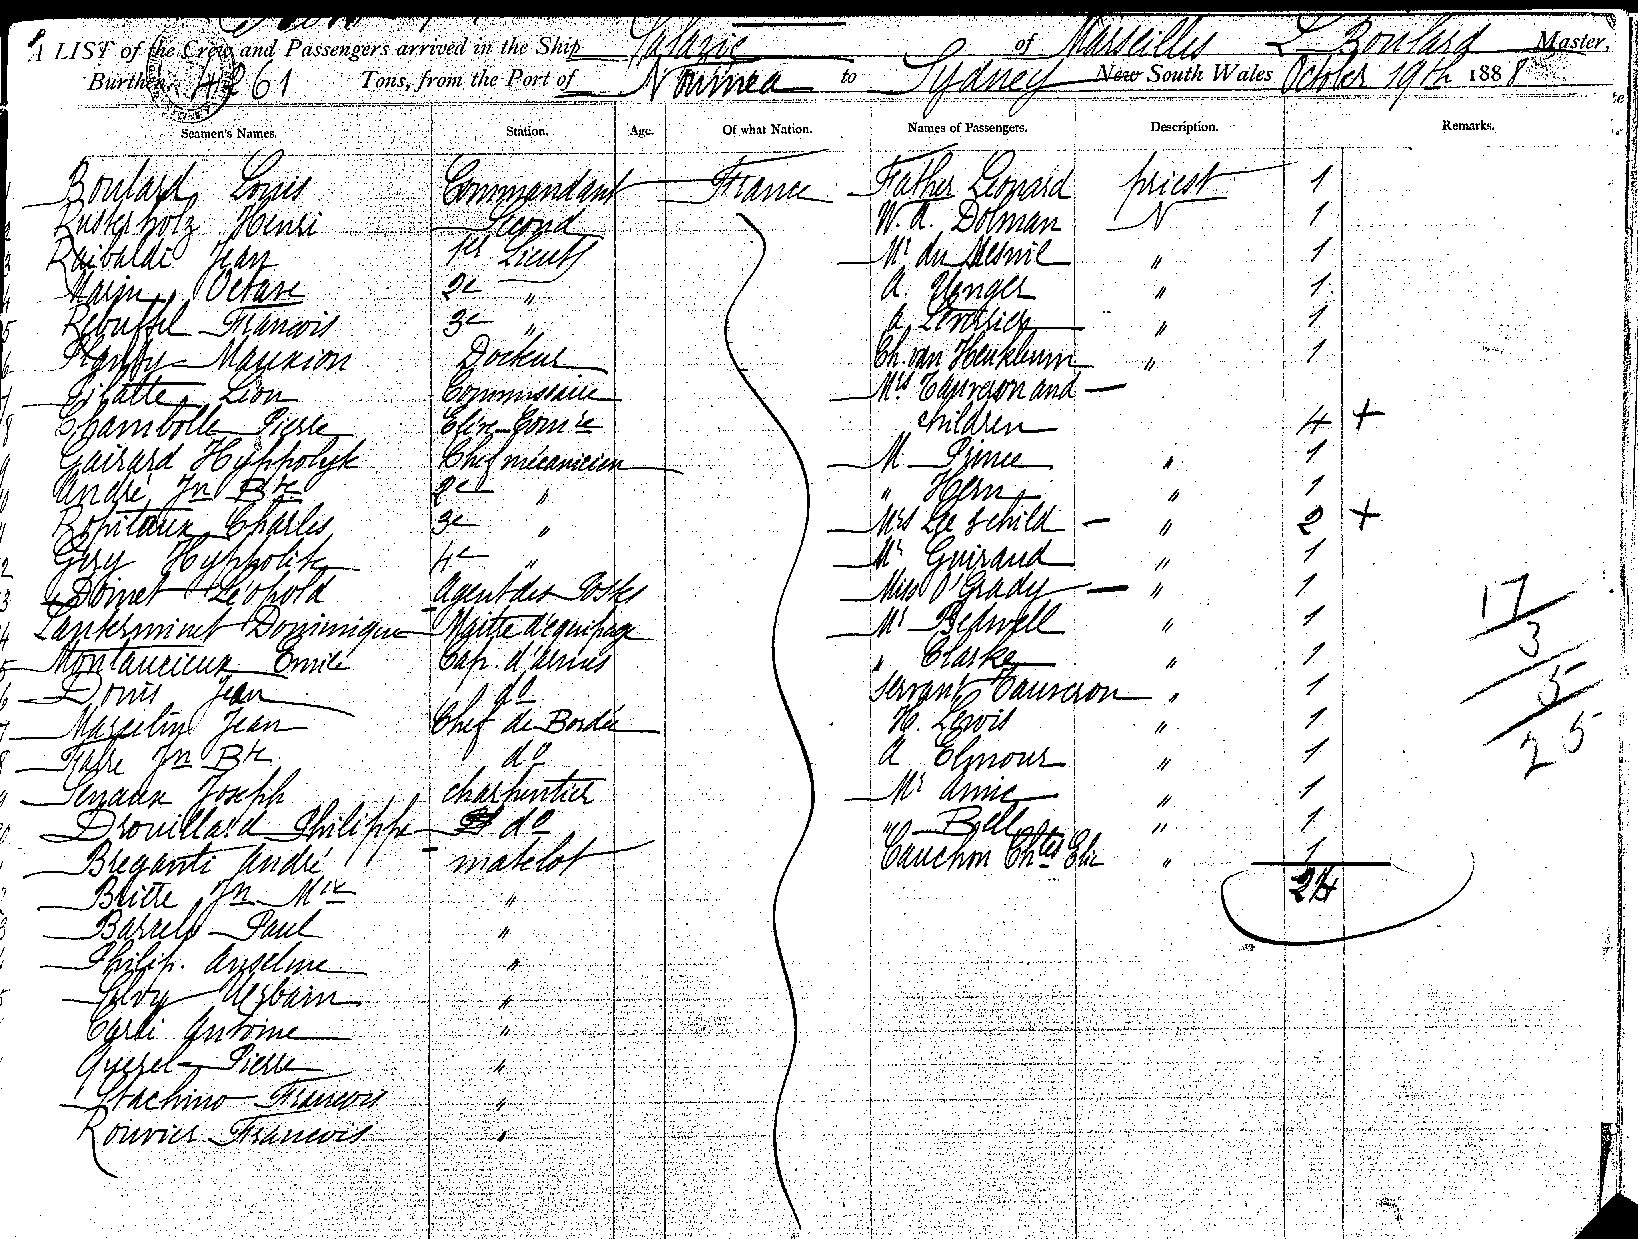 A LIST of the Crew and Passengers arrived in the Ship Salazie of Marseilles L Boulard Master,
Burthen 4261 Tons, from the Port of Noumea to Sydney New South Wales October 19th 1888
Seamen's Names. Station. Age. Of what Nation. Names of Passengers. Description. Remarks.
Boulard Louis Commandant France Father Leonard priest 1
Rusterholz Henri Second W. A. Dolman N 1
Raibaldi Jean 1er Lieut Mr du Mesnil " 1
Marin Octave 2e " A. Unger " 1
Rebuffel Francois 3e " A " 1
Mauxion Docteur Ch. van " 1
Pilatte Léon Commissaire Mrs and —
Chambolle Pierre Elève Comre children 4 +
Gairard Hyppolyte Chef mécanicien M Prince " 1
André Jn Bte 2e " " Hern " 1
Charles 3e " Mrs Lee & child — " 2 +
Gery Hyppolite 4e " Mr Guiraud " 1
Doinet Léopold Agent des Postes Miss O'Grady — " 1
Lanterminet Dominique Maitre d'équipage Mr Bedwell " 1
Montaucieux Emile Cap. d'armes " Clarke " 1
Donis Jean do Servant Cauveron " 1
Marcelin Jean Chef de Bordée H. Lewis " 1
Jn Bte do A Elmour " 1
Joseph charpentier Mr Amic " 1
Drouillard Philippe do " Bell " 1
Breganti André matelot Cauchon Chles " 1
Britte Jn Mie " 24
Barrels Paul "
Philip. Anselme "
Urbain "
Carli Antoine "
Querel Pierre "
Stachino Francois "
Rouvier Francois "
17
3
5
25